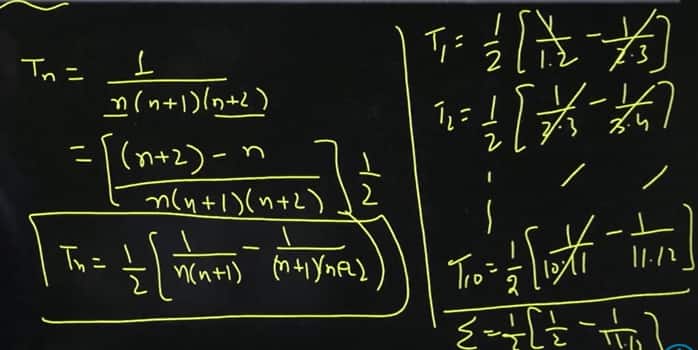 Tn = 1 / n(n+1)(n+2)
= [(n+2) - n / n(n+1)(n+2)] 1/2
Tn = 1/2 [1/n(n+1) - 1/(n+1)(n+2)]
T1 = 1/2 [1/1.2 - 1/2.3]
T2 = 1/2 [1/2.3 - 1/3.4]
T10 = 1/2 [1/10.11 - 1/11.12]
Σ = 1/2 [1/2 - 1/11.12]